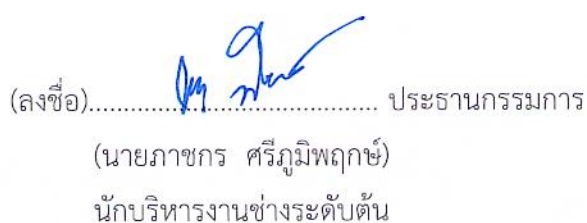 (ลงชื่อ)........................................ ประธานกรรมการ
(นายภาชกร ศรีภูมิพฤกษ์)
นักบริหารงานช่างระดับต้น